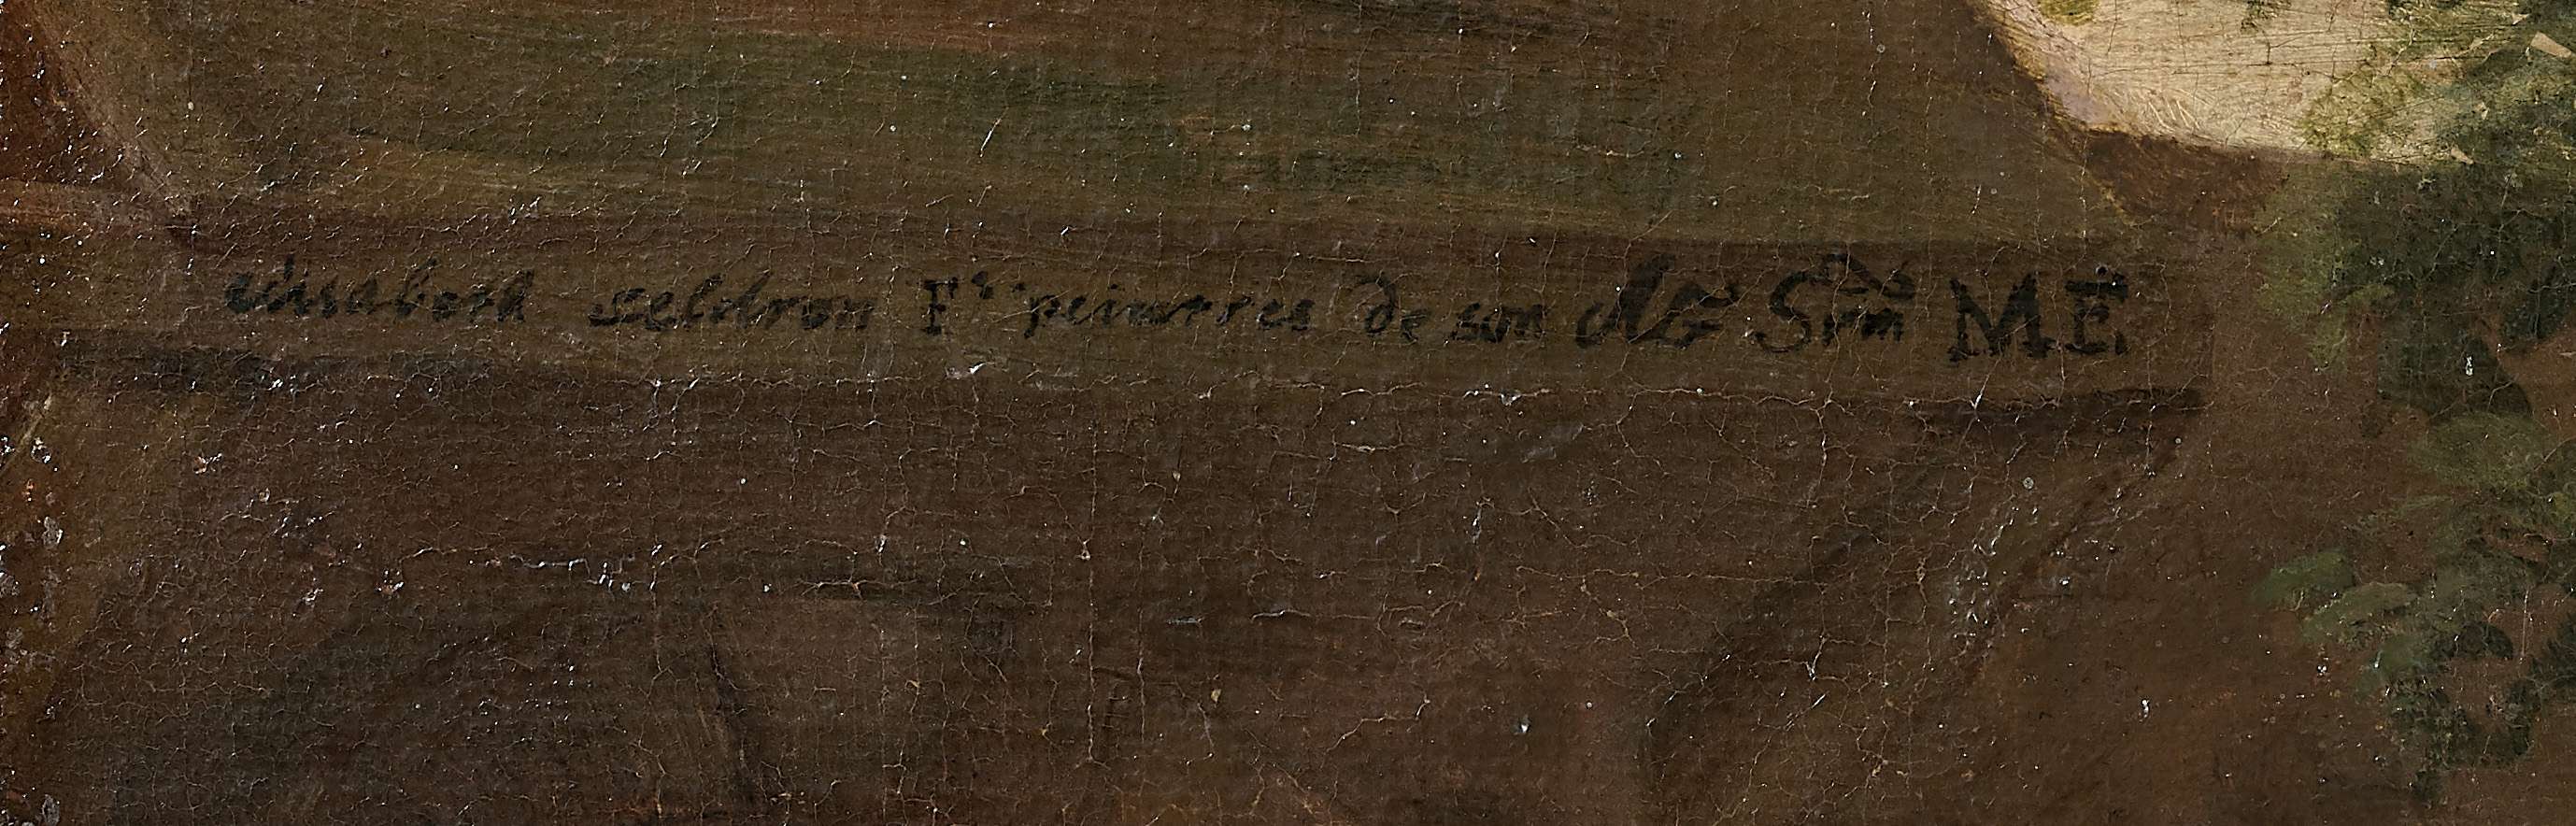 elisabeth seldron F peinteres de son AG Sme M E